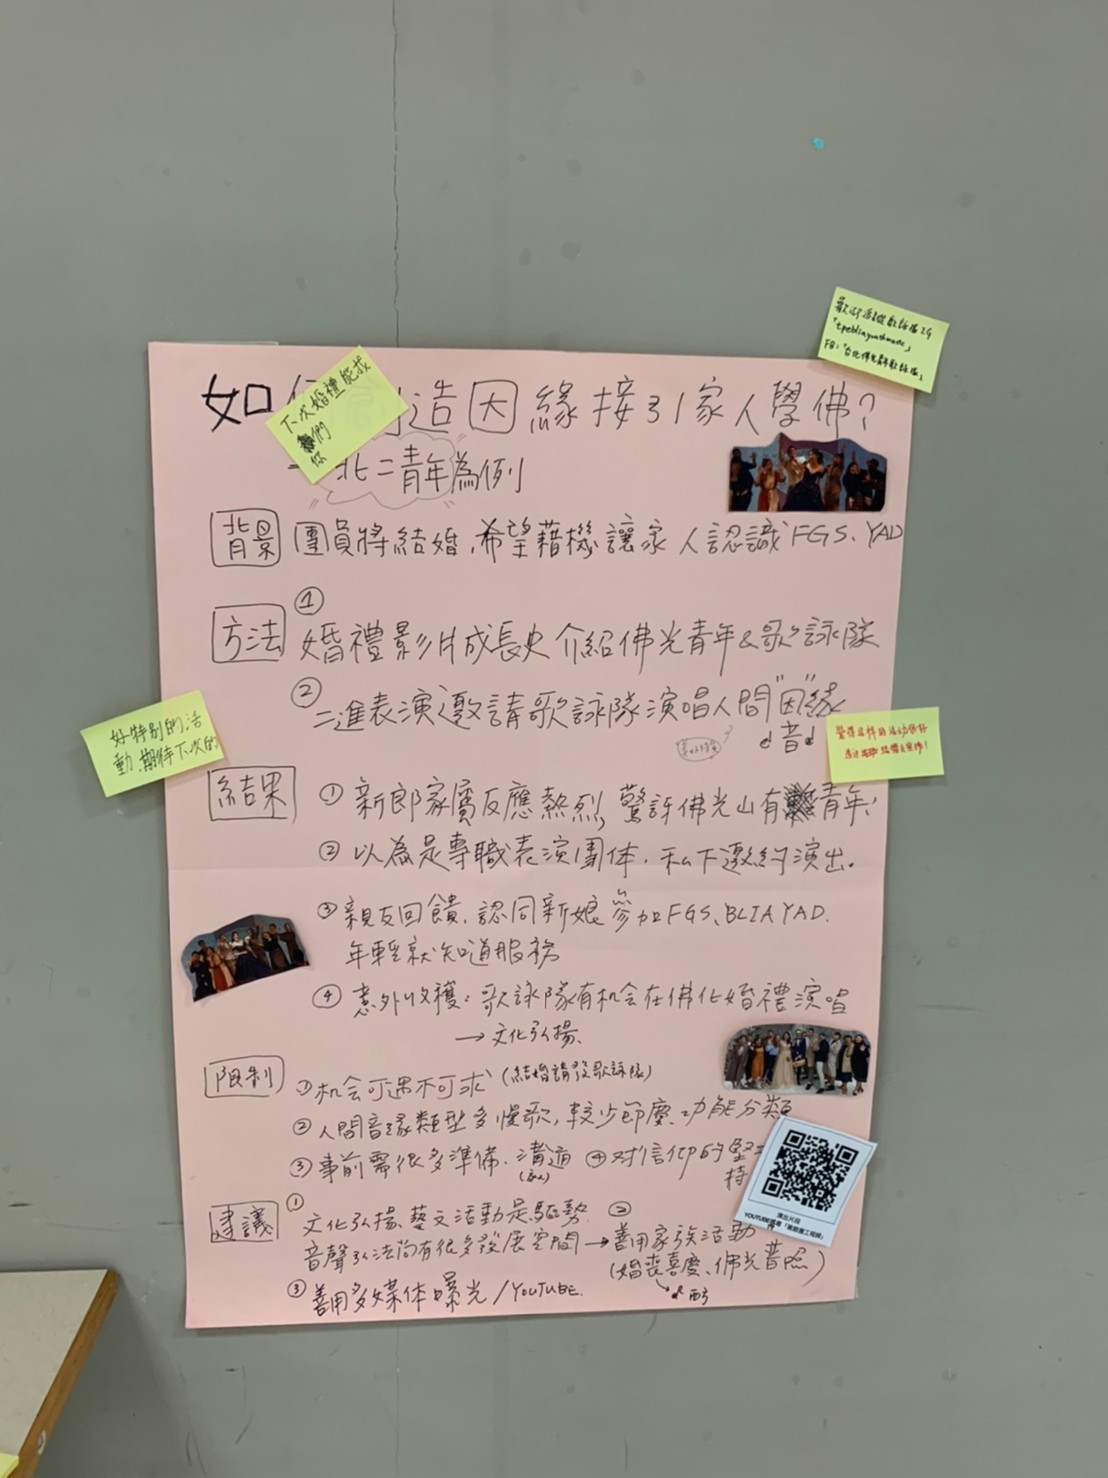 歡迎追蹤歌詠隊IG
「tpebliayouthmusic」
FB:「台北佛光青年歌詠隊」
下次婚禮能找
你們
如 造因緣接引家人學佛?
北二青年為例
背景 團員將結婚,希望藉機讓家人認識FGS、YAD
方法 ①
婚禮影片成長史介紹佛光青年&歌詠隊
② 二進表演邀請歌詠隊演唱人間"因"緣
音
好特別的活
動,期待下次的
結果 ① 新郎家屬反應熱烈,驚訝佛光山有青年!
② 以為是專職表演團体,私下邀約演出。
③ 親友回饋,認同新娘參加FGS、BLIA YAD.
年輕就知道服務
④ 意外收穫:歌詠隊有机会在佛化婚禮演唱
→文化弘揚
限制 ① 机会可遇不可求(結婚請發歌詠隊)
② 人間音緣類型多慢歌,較少節慶、功能分類
③ 事前需很多準備、溝通 ④ 对信仰的堅
持
演出片段
建議 ① 文化弘揚、藝文活動是趨勢
音聲弘法尚有很多發展空間→② 善用家族活動
(婚喪喜慶、佛光普照)
③ 善用多媒体曝光/YOUTUBE.